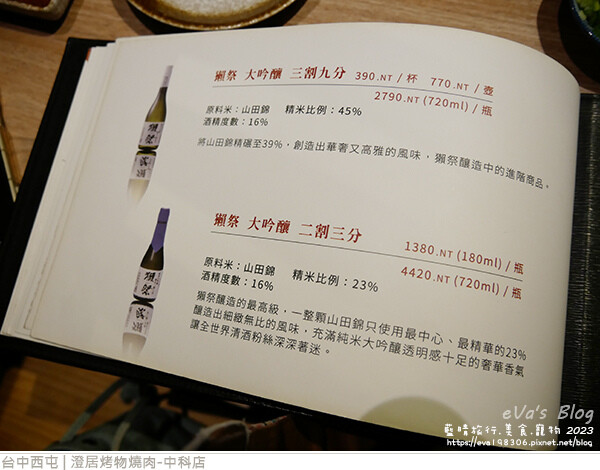 獺祭 大吟釀 三割九分 390.NT / 杯 770.NT / 壺
2790.NT (720ml) / 瓶
原料米：山田錦 精米比例：45%
酒精度數：16%
將山田錦精碾至39%，創造出華奢又高雅的風味，獺祭釀造中的進階商品。
獺祭 大吟釀 二割三分 1380.NT (180ml) / 瓶
4420.NT (720ml) / 瓶
原料米：山田錦 精米比例：23%
酒精度數：16%
獺祭釀造的最高級，一整顆山田錦只使用最中心、最精華的23%
釀造出細緻無比的風味，充滿純米大吟釀透明感十足的奢華香氣
讓全世界清酒粉絲深深著迷。
eVa's Blog
藍晴旅行.美食.寵物 2023
https://eva198306.pixnet.net/blog
台中西屯 | 澄居烤物燒肉-中科店